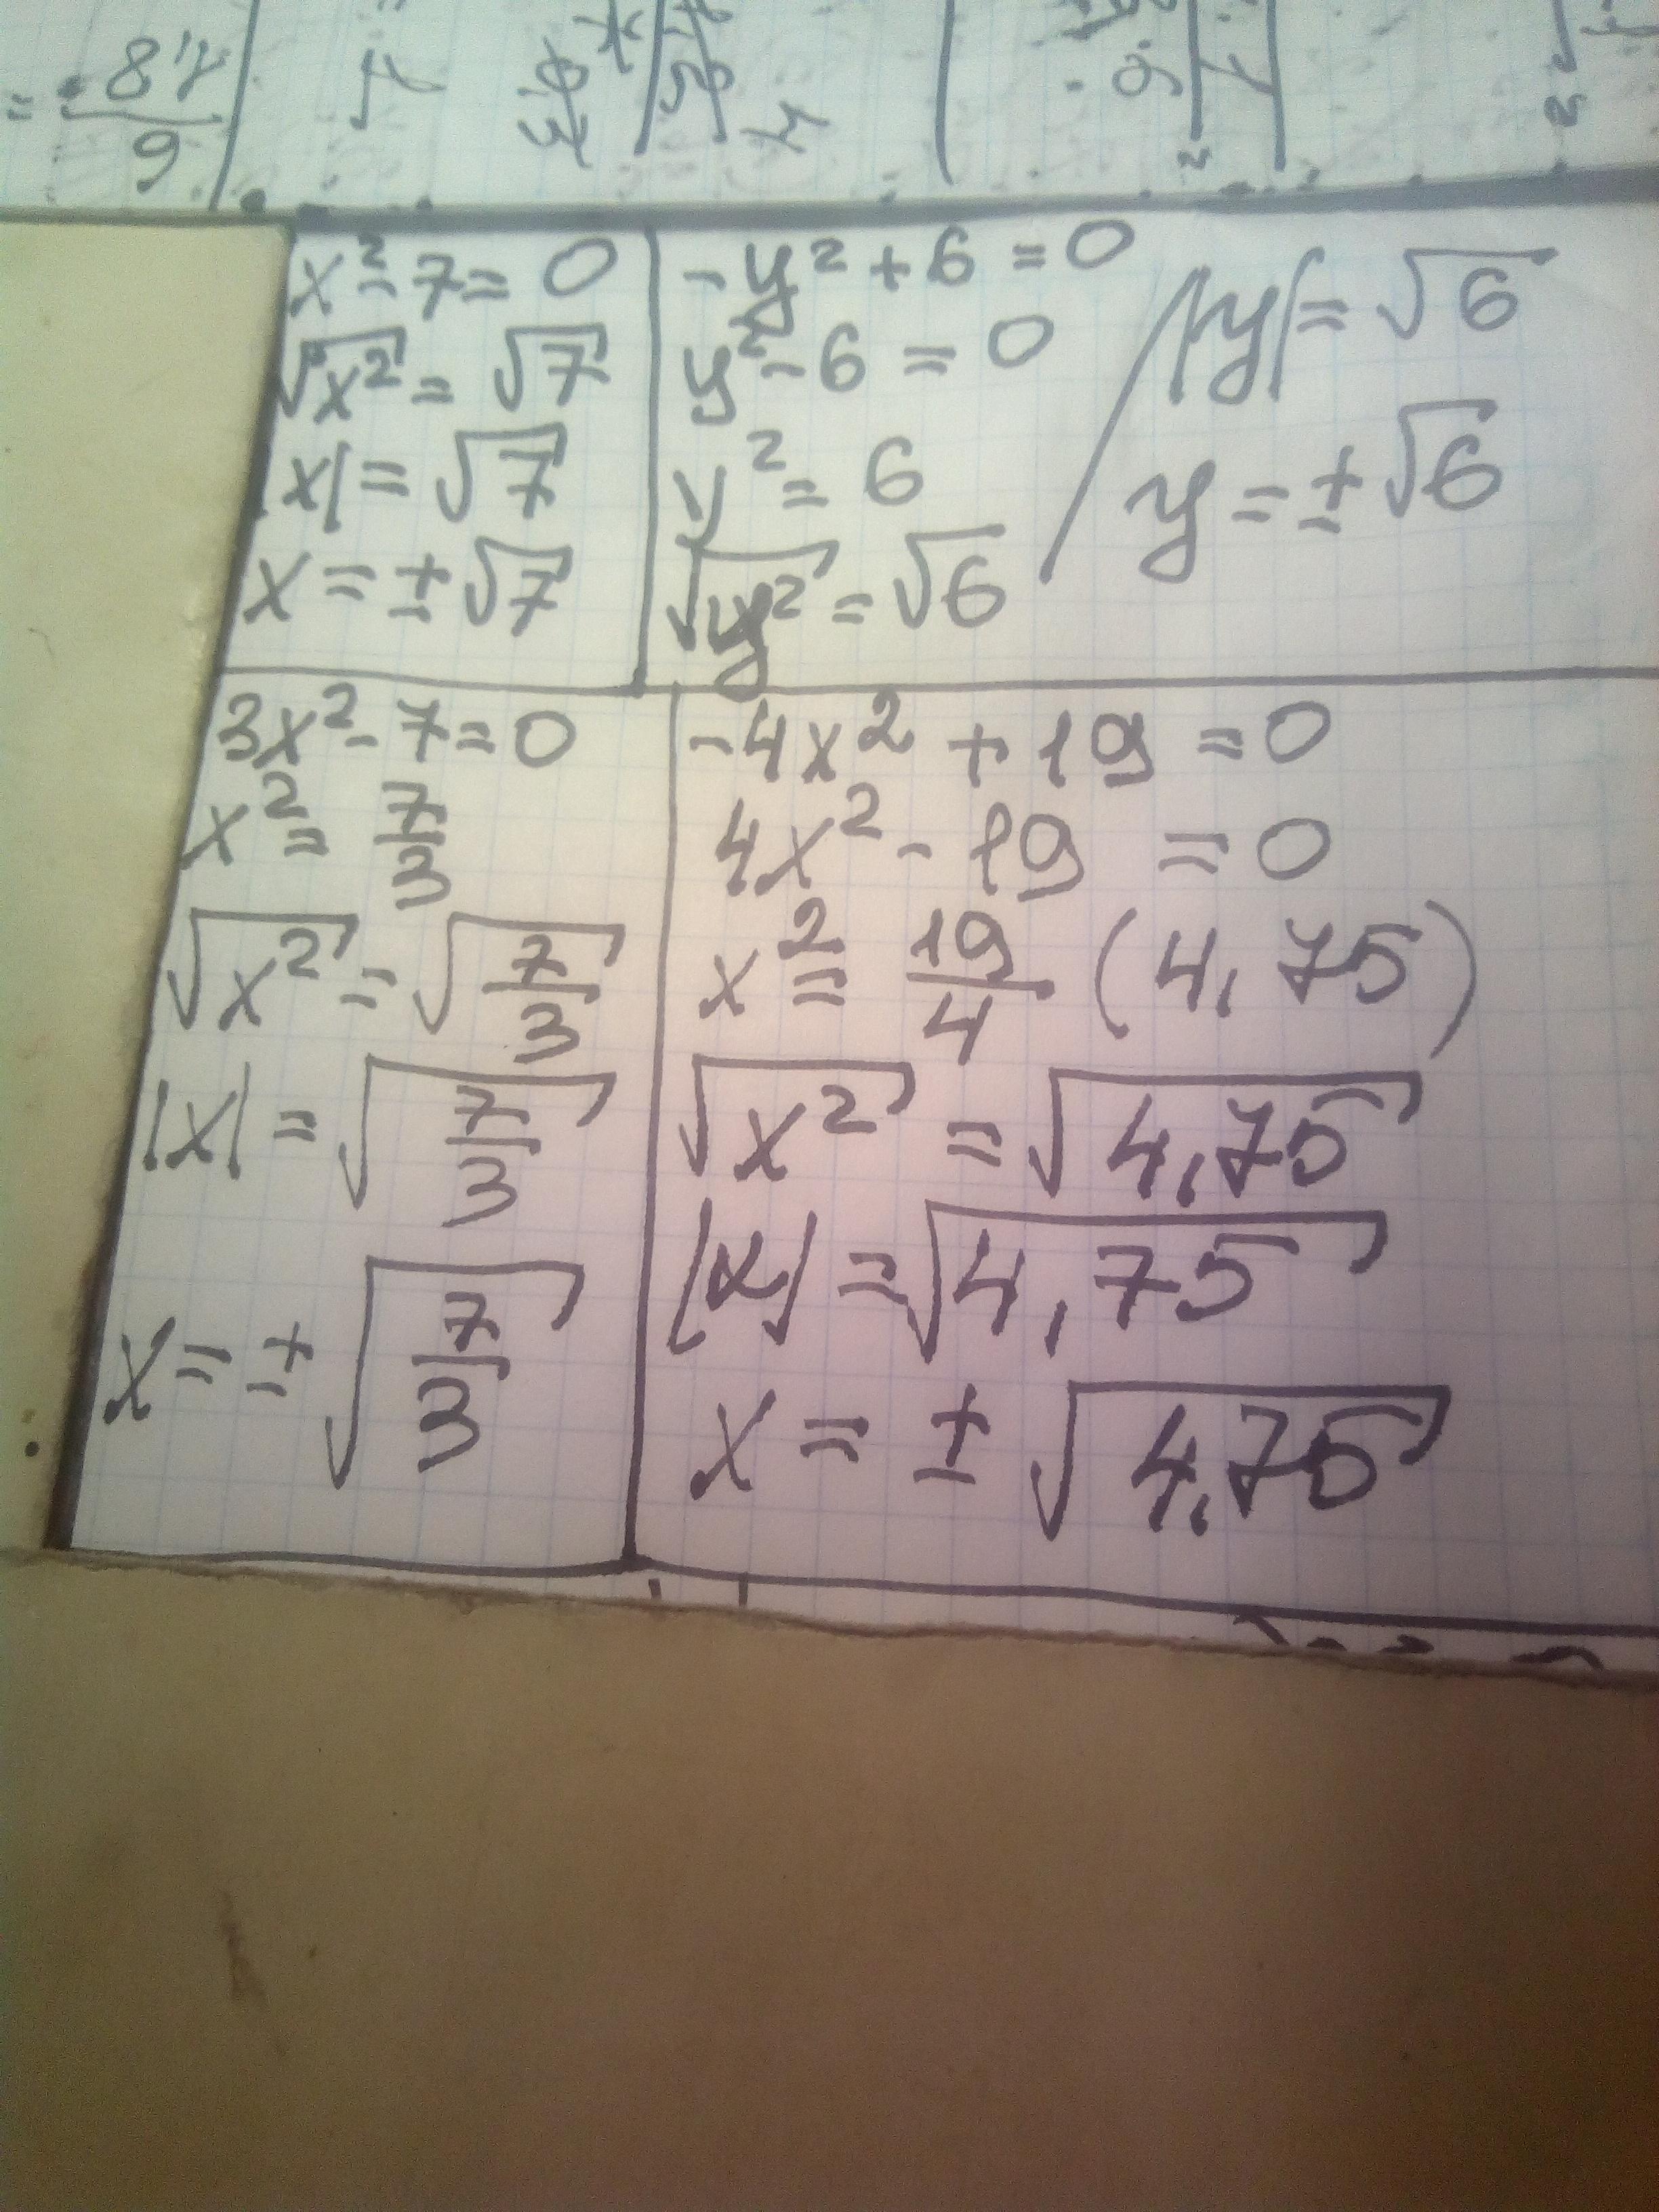 x² - 7 = 0
√x² = √7
|x| = √7
x = ± √7
- y² + 6 = 0
y² - 6 = 0
y² = 6
√y² = √6
|y| = √6
y = ± √6
3x² - 7 = 0
x² = 7/3
√x² = √7/3
|x| = √7/3
x = ± √7/3
- 4x² + 19 = 0
4x² - 19 = 0
x² = 19/4 (4,75)
√x² = √4,75
|x| = √4,75
x = ± √4,75